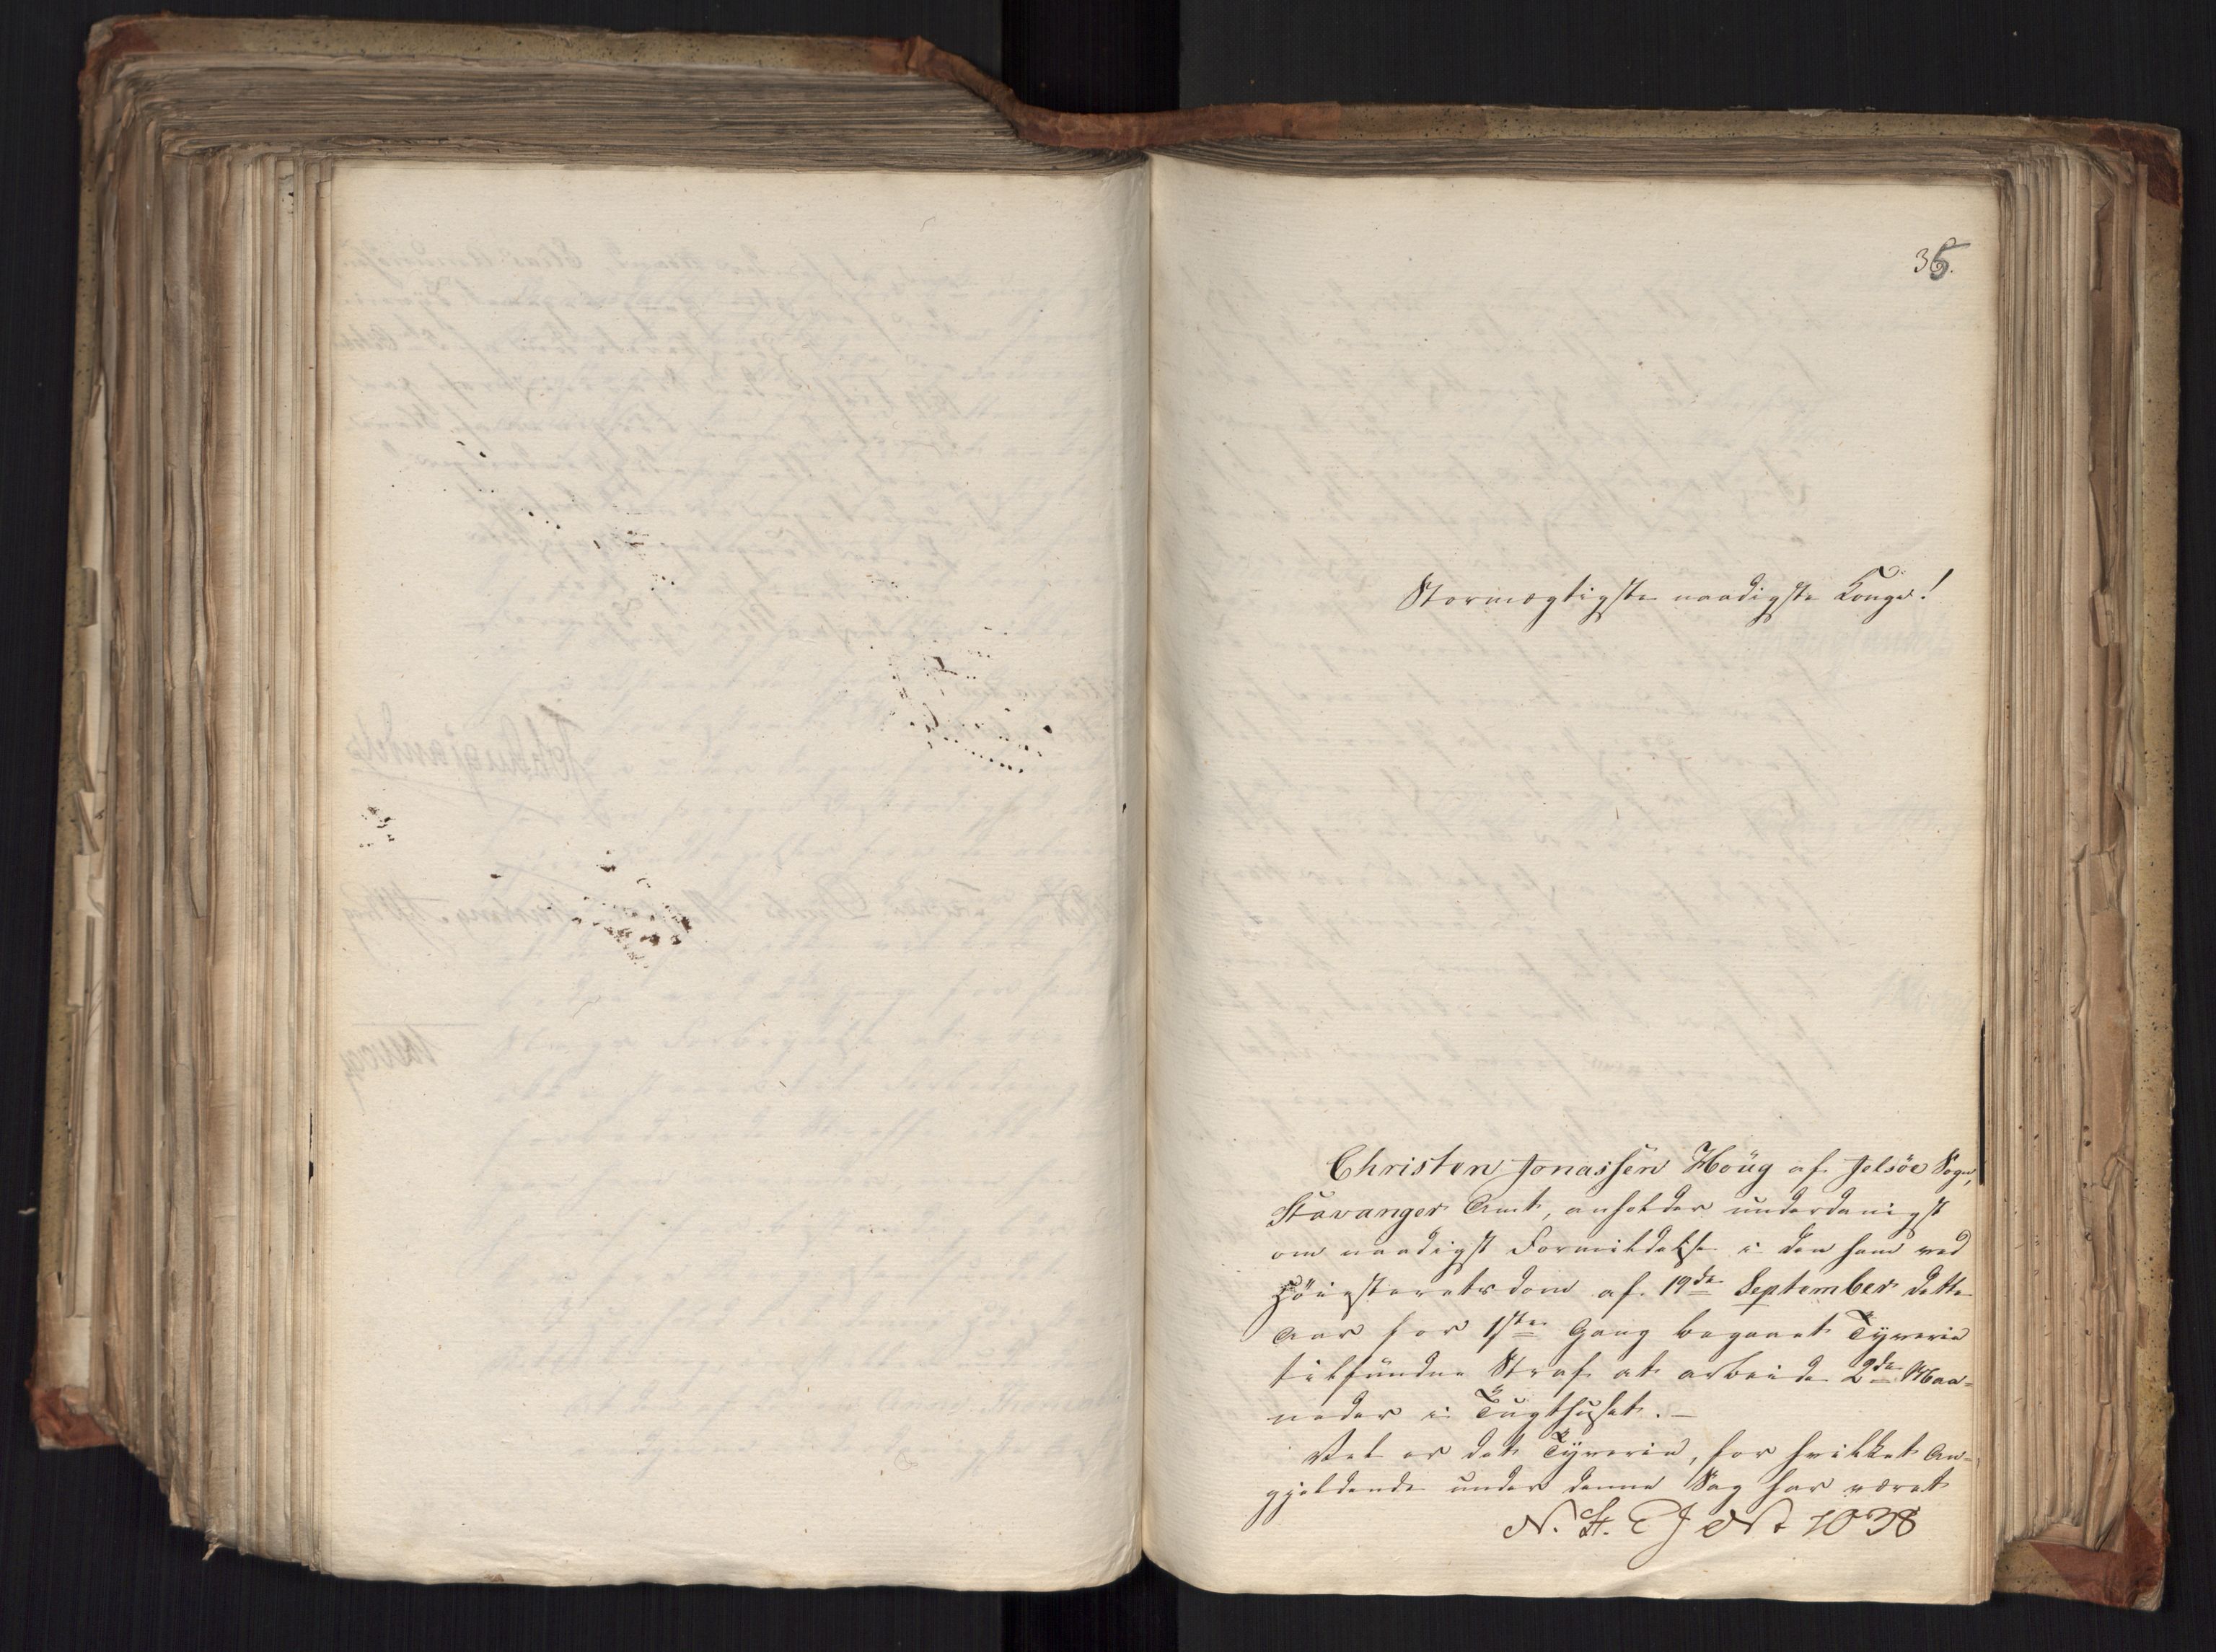 36.
Stormægtigste naadigste Konge!
Christen Jonassen Houg af Jelsöe Sogn,
Stavanger Amt, anholder underdanigst
om naadigst Formildelse i den ham ved
Höiesteretsdom af 19de September dette
Aar for 1ste Gang begaaet Tyverie
tilfundne Straf at arbeide 2de Maa-
neder i Tugthuset. –
Vel er det Tyverie, for hvilket An-
gjeldende under denne Sag har været
N. St. E J No 1038